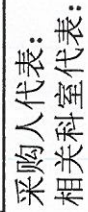 采购人代表：
相关科室代表：